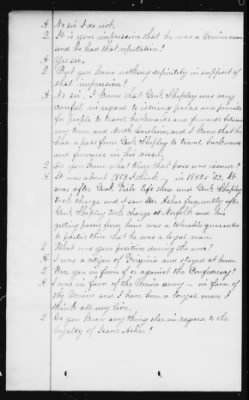 A No sir I do not.
Q It is your impression that he was a Union man
and he had that reputation?
A Yes sir.
Q But you know nothing definitely in support of
that impression?
A No sir. I know that Genl. Shepley was very
careful in regard to issuing passes and permits
for people to travel backwards and forwards between
my town and North Carolina, and I know that he
had a pass from Genl. Shepley to travel backwards
and forwards in his vessel.
Q Do you know what year that pass was issued?
A It was about 1863 I think, in 1862 & '63. It
was after Genl. Viele left there and Genl. Shepley
took charge and I saw Mr. Asher frequently after
Genl. Shepley took charge at Norfolk and his
getting passes from him was a tolerable guarantee
to a citizen then that he was a loyal man.
Q What was your position during the war?
A I was a citizen of Virginia and stayed at home.
Q Were you in favor of or against the Confederacy?
A I was in favor of the Union army - in favor of
the Union and I have been a loyal man I
think all my life.
Q Do you know any thing else in regard to the
loyalty of Isaac Asher?